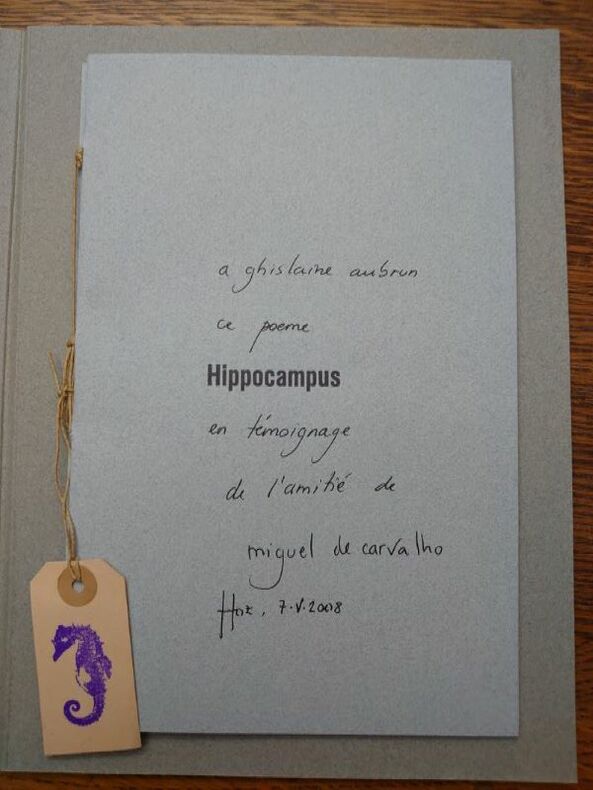 a ghislaine aubrun
ce poeme
Hippocampus
en témoignage
de l'amitié de
miguel de carvalho
7.V.2008